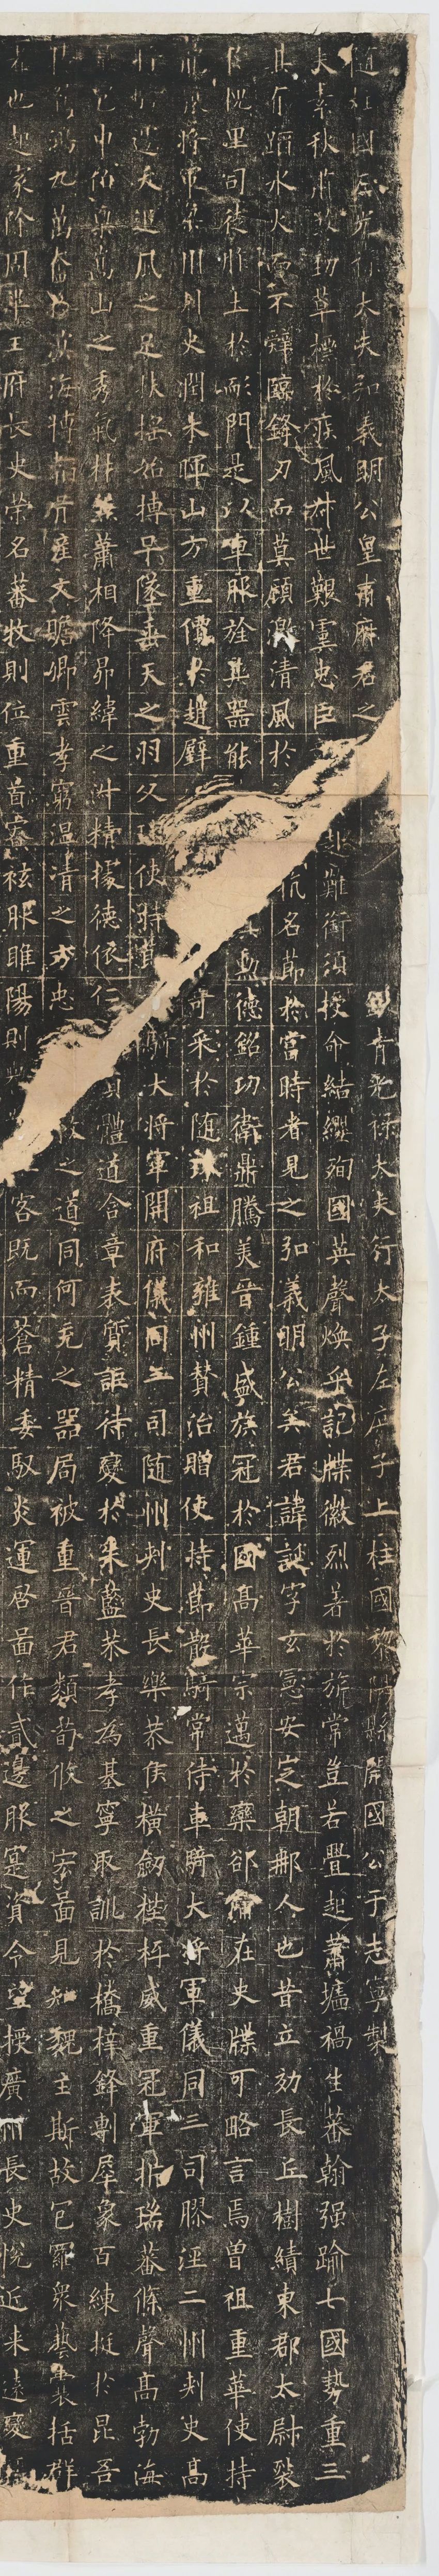 随柱國左光祿大夫弘義明公皇甫府君之 青光祿大夫行太子左庶子上柱國黎陽縣開國公于志寧製
夫素秋肅煞勁草標於疾風叔世艱虞忠臣 赴難銜須授命結纓殉國英聲煥乎記牒徽烈著於旂常豈若疊起蕭墻禍生蕃翰强踰七國勢重三
其有蹈水火而不辭臨鋒刃而莫顧激清風於 抗名節於當時者見之弘義明公矣君諱誕字玄憲安定朝那人也昔立効長丘樹績東郡太尉裂
門是以車服旌其器能 其勳德銘功衛鼎騰美晉鍾盛族冠於國高華宗邁於欒郤備在史牒可略言焉曾祖重華使持
龍驤將軍梁州刺史潤木暉山方重價於趙璧 奇采於随珠祖和雍州贊治贈使持節散騎常侍車騎大將軍儀同三司膠涇二州刺史高
遊天逸風之足扶搖始摶早墜垂天之羽父璠使持節 大將軍開府儀同三司随州刺史長樂恭侯橫劒桂枰威重冠軍析瑞蕃條聲高勃海
宅申伯卓嵩山之秀氣材兼蕭相降昴緯之淑精據德依仁 貞體道含章表質詎待變於朱藍恭孝為基寧取訓於橋梓鋒剸犀象百練挺於昆吾
鴻九萬奮於滇海博韜胄產文贍卿雲孝窮温清之方忠 之道同何充之器局被重晉君類荀攸之宏圖見知魏主斯故包羅衆藝囊括群
者也起家除周畢王府長史榮名蕃牧則位重首寮袨服睢陽則 客既而蒼精委馭炎運啓圖作貳邊服寔資令望授廣州長史悅近来遠變